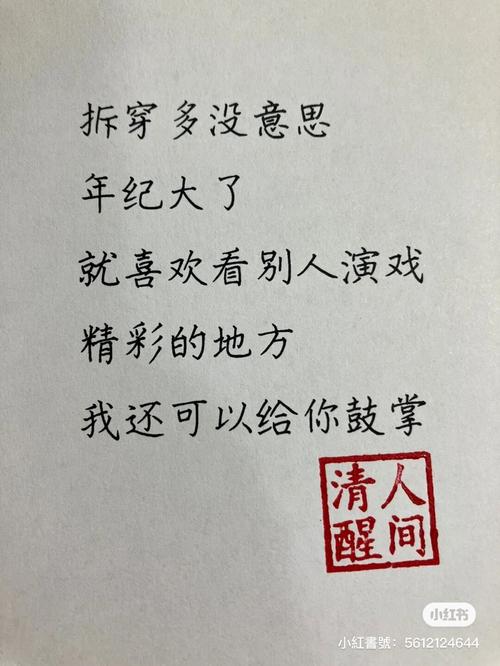 拆穿多没意思
年纪大了
就喜欢看别人演戏
精彩的地方
我还可以给你鼓掌
人间
清醒
小红书
小紅書號：5612124644